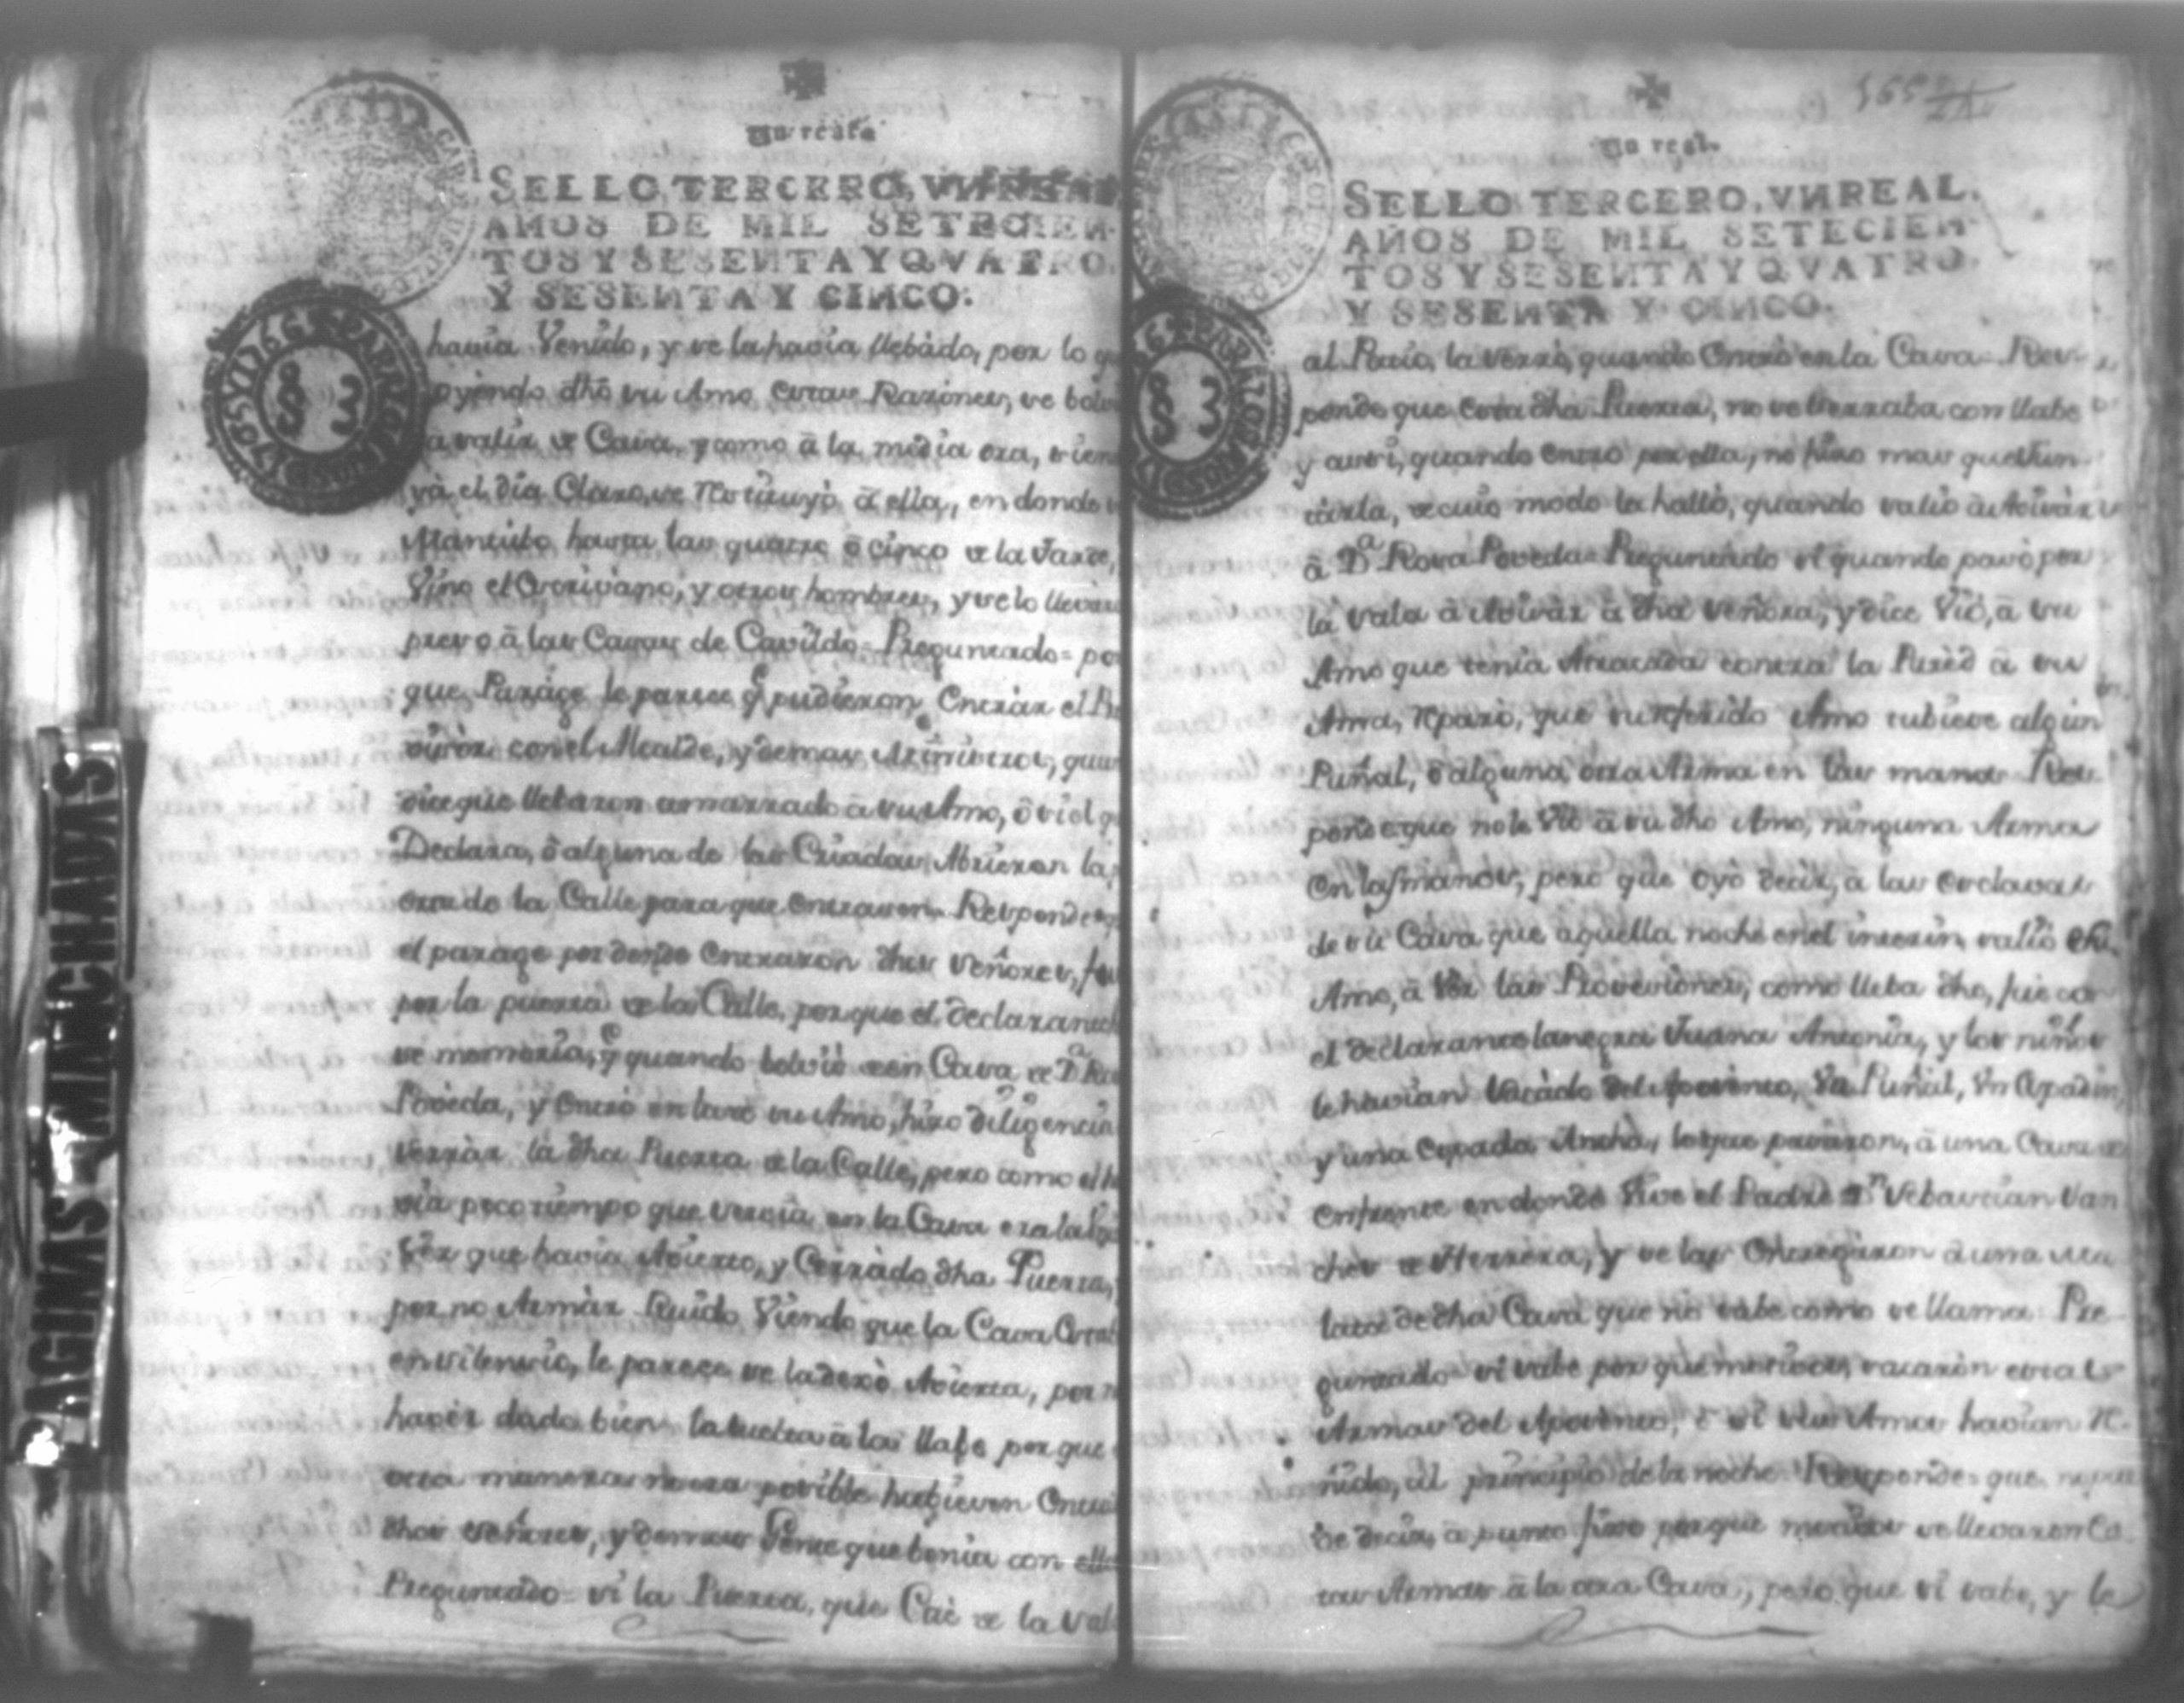 Un real
SELLO TERCERO, VN REAL
AÑOS DE MIL SETECIEN-
TOS Y SESENTA Y QVATRO,
Y SESENTA Y CINCO.
havia Venido, y se la havia llebàdo, por lo
oyendo dho su Amo estas Razones, se
a salir de Casa, y como â la media ora,
yà el dia Claro, se restituyò â ella, en donde
Mantubo hasta las quatro ô cinco de la Tarde,
Vino el Escrivano, y otros hombres, y se lo
preso â las Casas de Cavildo= Preguntado= 
que Parage le parece q pudieron Entrar el
con el Alcalde, y demas Ministros,
dice que llebaron amarrado â su Amo, ô si el
Declara, ô alguna de las Criadas, Abrieron la
de la Calle para que entrasen= Responde
el parage por donde Entraron dhos Señores,
por la puerta de la Calle, porque el declarante
se memoria, q quando bolviò de en Casa de Da
Poveda, y entrò en la de su Amo, hizo diligencia
Serràr la dha Puerta de la Calle, pero como el
poco tiempo que servia en la Casa era la
Vez que havia Avierto, y Cerràdo dha Puerta,
por no Armàr Ruido Viendo que la Casa
en silencio, le parece se la dexò Avierta, por
havèr dado bien la buelta â las llabe por que
otra manera no era posible hubiesen
dhos Señores, y demas Gente que benia con
Preguntado= si la Puerta, que Càe de la
AGINAS MANCHADAS
Un real
SELLO TERCERO, VN REAL.
AÑOS DE MIL SETECIEN-
TOS Y SESENTA Y QVATRO,
Y SESENTA Y CINCO.
al Patio, la serrò, quando Entrò en la Casa= Res-
ponde que esta dha Puerta, no se serraba con llabe
y assi, quando entrò por ella, no hizo mas que Jun-
tarla, de cuio modo la hallò, quando saliò â Avisàr
â Da Rosa Poveda= Preguntado si quando pasò por
la sala â Avisàr â dha Señora, y dice Viò, â su
Amo que tenia Atracada contra la Parèd â su
Ama, reparò, que su referido Amo tubiese algùn
Puñal, ô alguna otra Arma en las manos= Res-
ponde que no le Viò â su dho Amo, ninguna Arma
en las manos, pero que oyò decir, â las esclavas
de su Casa que aquella noche en el interin saliò
Amo, â Ver las Proveciones, como lleba dho, fue
el declarante la negra Juana Antonia, y los niños
le havian sacàdo del Aposento, Un Puñal, Un Espadin,
y una Espada Ancha, lo que pasaron, â una Casa de
enfrente en donde Vive el Padre Dn Sebastian San
ches de Herrera, y se las Entregaron â una Mu
lata de dha Casa que no sabe como se llama= Pre-
guntado= si sabe por que motivos, sacaron estas
Armas del Aposento, ô si sus Amos havian re-
ñido, al principio de la noche= Responde= que
de decir, â punto fixo porque motivo se llevaron Es-
tas Armas â la otra Casa, pero que si sabe, y le